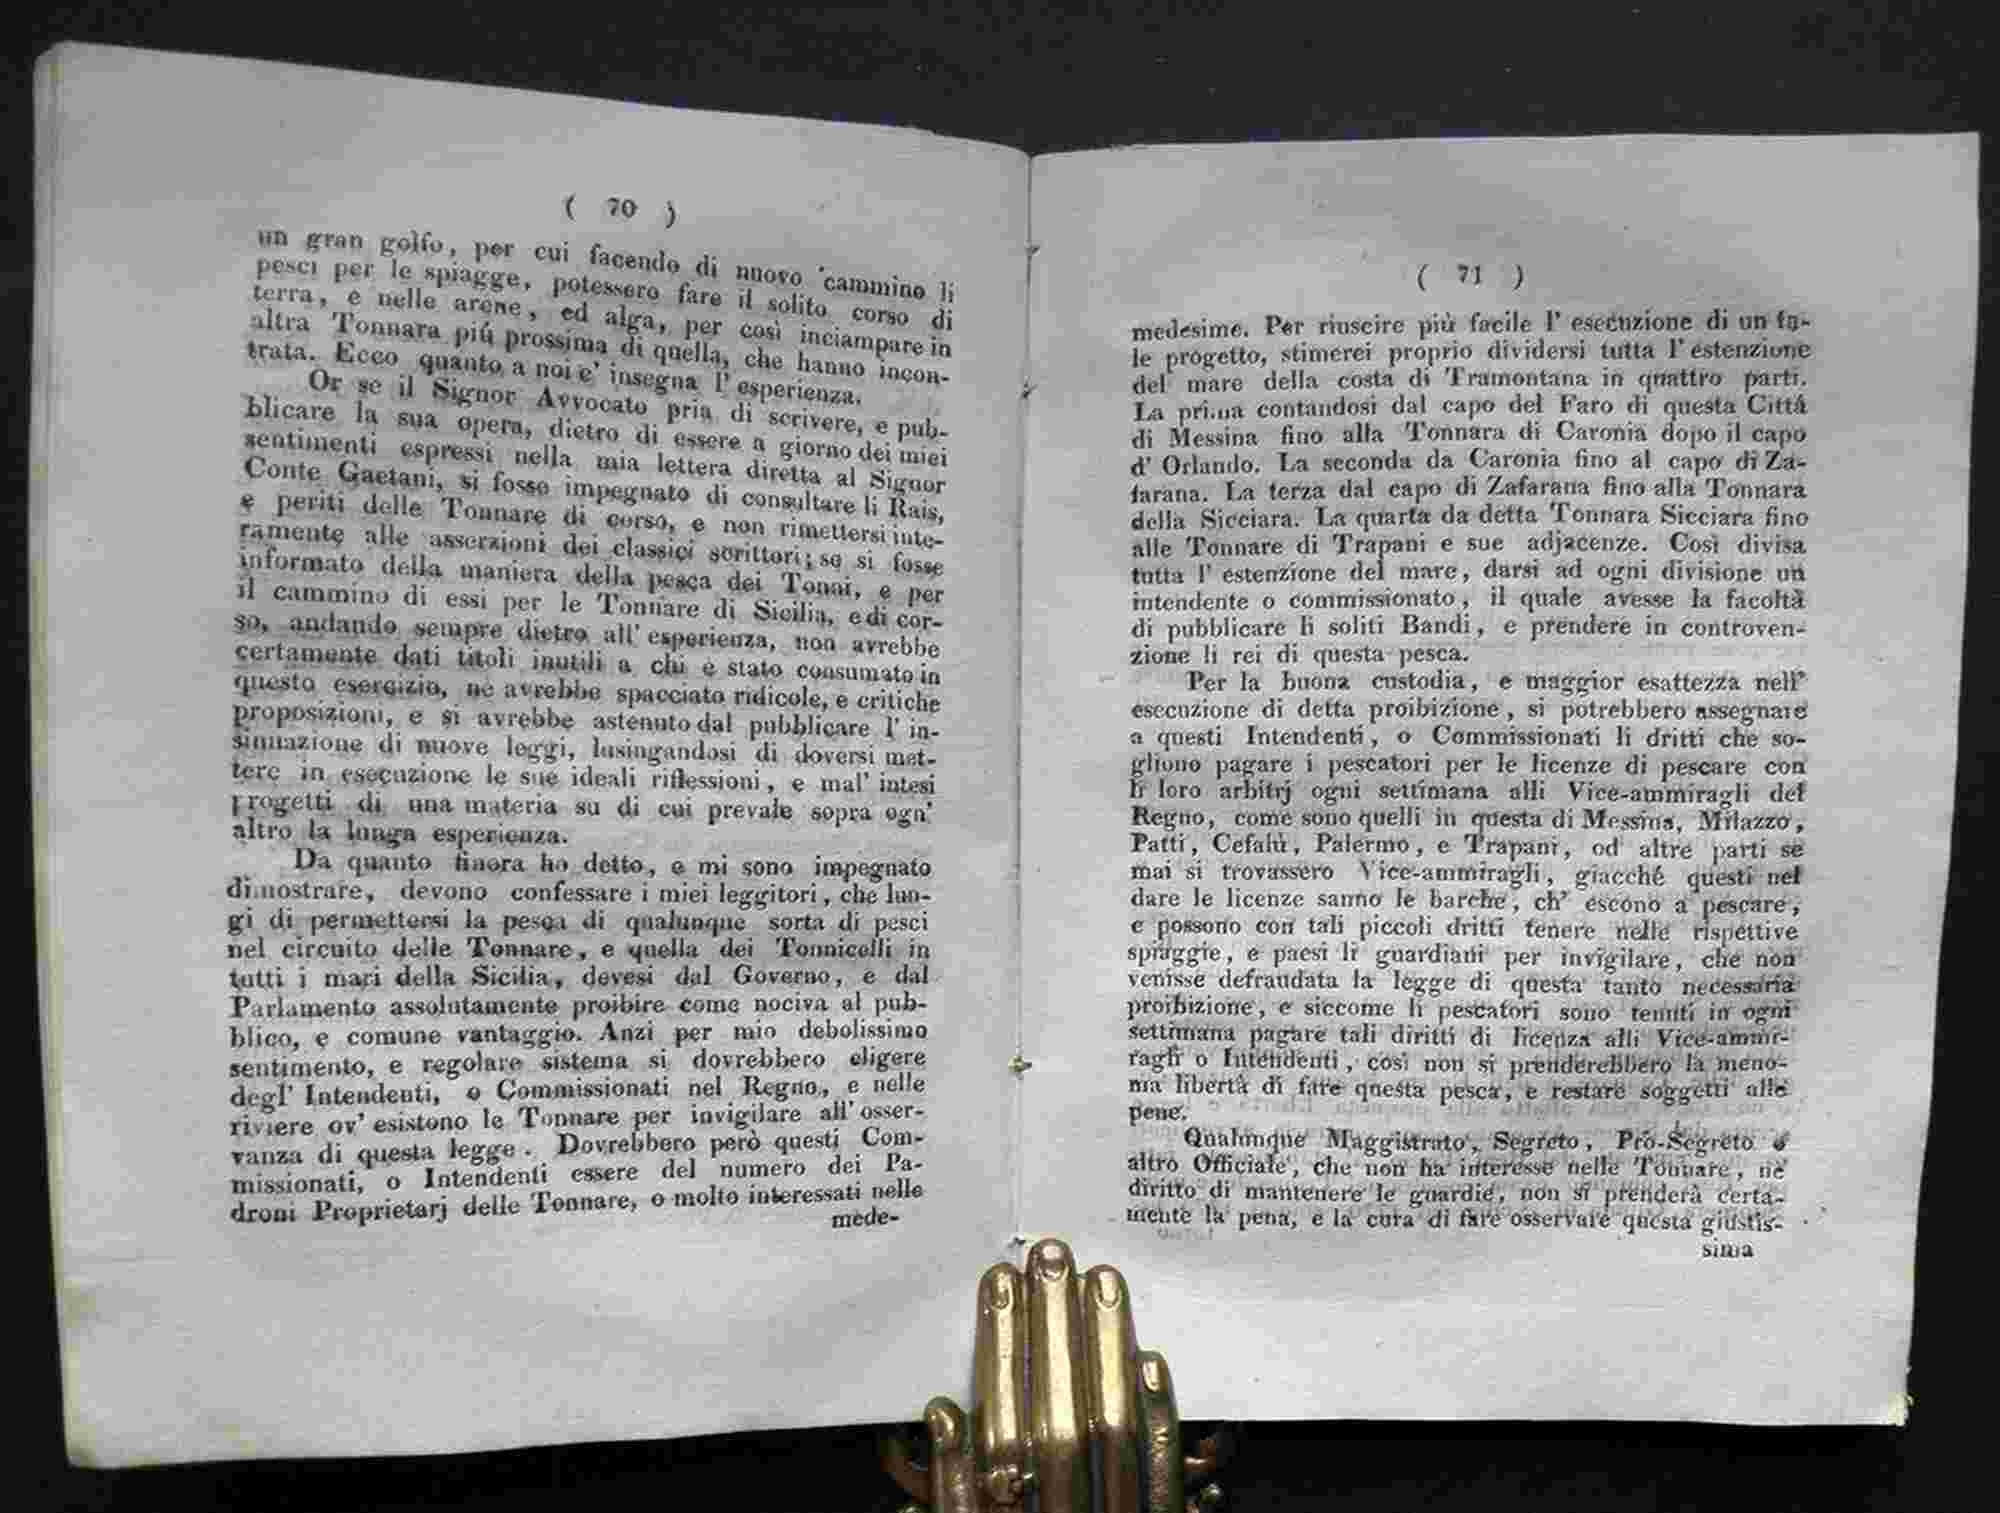 ( 70 )
un gran golfo, per cui facendo di nuovo cammino li
pesci per le spiagge, potessero fare il solito corso di
terra, e nelle arene, ed alga, per così inciampare in
altra Tonnara più prossima di quella, che hanno incon-
trata. Ecco quanto a noi e' insegna l' esperienza.
Or se il Signor Avvocato pria di scrivere, e pub-
blicare la sua opera, dietro di essere a giorno dei miei
sentimenti espressi nella mia lettera diretta al Signor
Conte Gaetani, si fosse impegnato di consultare li Rais,
e periti delle Tonnare di corso, e non rimettersi inte-
ramente alle asserzioni dei classici scrittori; se si fosse
informato della maniera della pesca dei Tonni, e per
il cammino di essi per le Tonnare di Sicilia, e di cor-
so, andando sempre dietro all' esperienza, non avrebbe
certamente dati titoli inutili a chi è stato consumato in
questo esercizio, nè avrebbe spacciato ridicole, e critiche
proposizioni, e si avrebbe astenuto dal pubblicare l' in-
sinuazione di nuove leggi, lusingandosi di doversi met-
tere in esecuzione le sue ideali riflessioni, e mal' intesi
progetti di una materia su di cui prevale sopra ogn'
altro la lunga esperienza.
Da quanto finora ho detto, e mi sono impegnato
dimostrare, devono confessare i miei leggitori, che lun-
gi di permettersi la pesca di qualunque sorta di pesci
nel circuito delle Tonnare, e quella dei Tonnicelli in
tutti i mari della Sicilia, devesi dal Governo, e dal
Parlamento assolutamente proibire come nociva al pub-
blico, e comune vantaggio. Anzi per mio debolissimo
sentimento, e regolare sistema si dovrebbero eligere
degl' Intendenti, o Commissionati nel Regno, e nelle
riviere ov' esistono le Tonnare per invigilare all' osser-
vanza di questa legge. Dovrebbero però questi Com-
missionati, o Intendenti essere del numero dei Pa-
droni Proprietarj delle Tonnare, o molto interessati nelle
mede-
( 71 )
medesime. Per riuscire più facile l' esecuzione di un ta-
le progetto, stimerei proprio dividersi tutta l' estenzione
del mare della costa di Tramontana in quattro parti.
La prima contandosi dal capo del Faro di questa Città
di Messina fino alla Tonnara di Caronia dopo il capo
d' Orlando. La seconda da Caronia fino al capo di Za-
farana. La terza dal capo di Zafarana fino alla Tonnara
della Sicciara. La quarta da detta Tonnara Sicciara fino
alle Tonnare di Trapani e sue adjacenze. Così divisa
tutta l' estenzione del mare, darsi ad ogni divisione un
intendente o commissionato, il quale avesse la facoltà
di pubblicare li soliti Bandi, e prendere in controven-
zione li rei di questa pesca.
Per la buona custodia, e maggior esattezza nell'
esecuzione di detta proibizione, si potrebbero assegnare
a questi Intendenti, o Commissionati li dritti che so-
gliono pagare i pescatori per le licenze di pescare con
li loro arbitrj ogni settimana alli Vice-ammiragli del
Regno, come sono quelli in questa di Messina, Milazzo,
Patti, Cefalù, Palermo, e Trapani, od altre parti se
mai si trovassero Vice-ammiragli, giacché questi nel
dare le licenze sanno le barche, ch' escono a pescare,
e possono con tali piccoli dritti tenere nelle rispettive
spiaggie, e paesi li guardiani per invigilare, che non
venisse defraudata la legge di questa tanto necessaria
proibizione, e siccome li pescatori sono tenuti in ogni
settimana pagare tali diritti di licenza alli Vice-ammi-
ragli o Intendenti, così non si prenderebbero la meno-
ma libertà di fare questa pesca, e restare soggetti alle
pene.
Qualunque Maggistrato, Segreto, Pro-Segreto o
altro Officiale, che non ha interesse nelle Tonnare, nè
diritto di mantenere le guardie, non si prenderà certa-
mente la pena, e la cura di fare osservare questa giustis-
sima